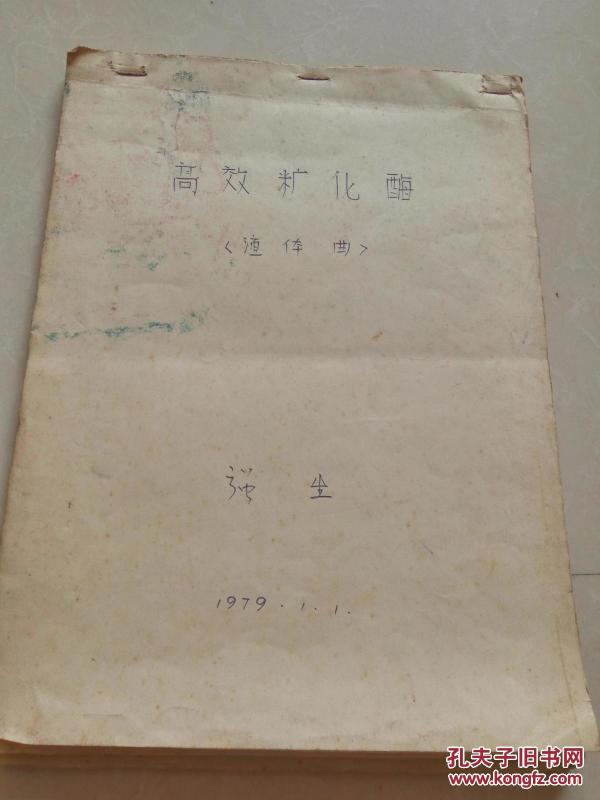 高效糖化酶
<液体曲>
强生
1979.1.1.
孔夫子旧书网
www.kongfz.com